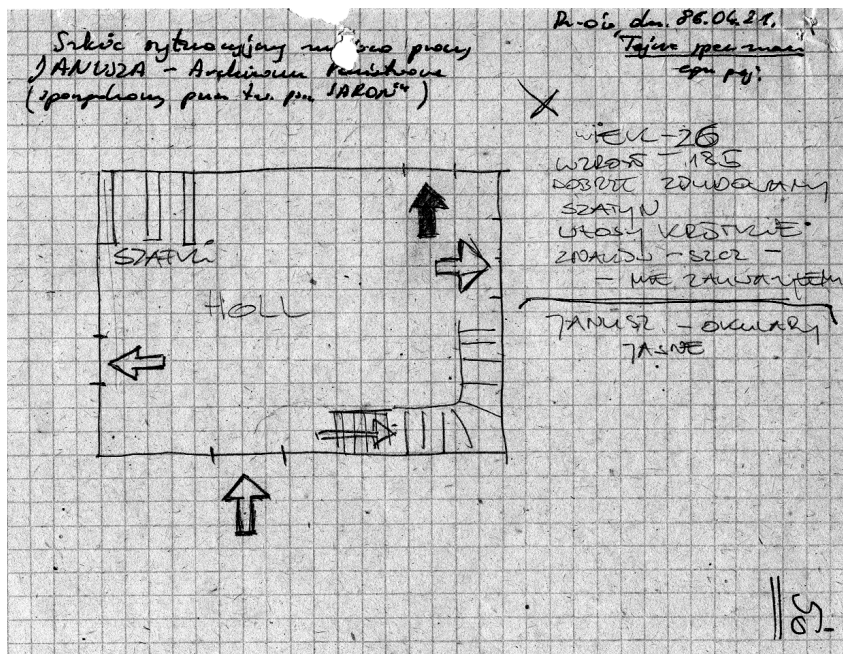 Szkic sytuacyjny miejsca pracy
JANUSZA - Archiwum Państwowe
(sporządzony przez tw. ps. "ARON")
dn. 86.04.21.
Tajne spec. znacz.
egz. poj.
WIEK - 26
WZROST - 185
DOBRZE ZBUDOWANY
SZATYN
WŁOSY KRÓTKIE
ZNAKÓW - SZCZ -
- NIE ZAUWAŻYŁEM
JANUSZ - OKULARY
JASNE
SZATNIA
HOLL
50